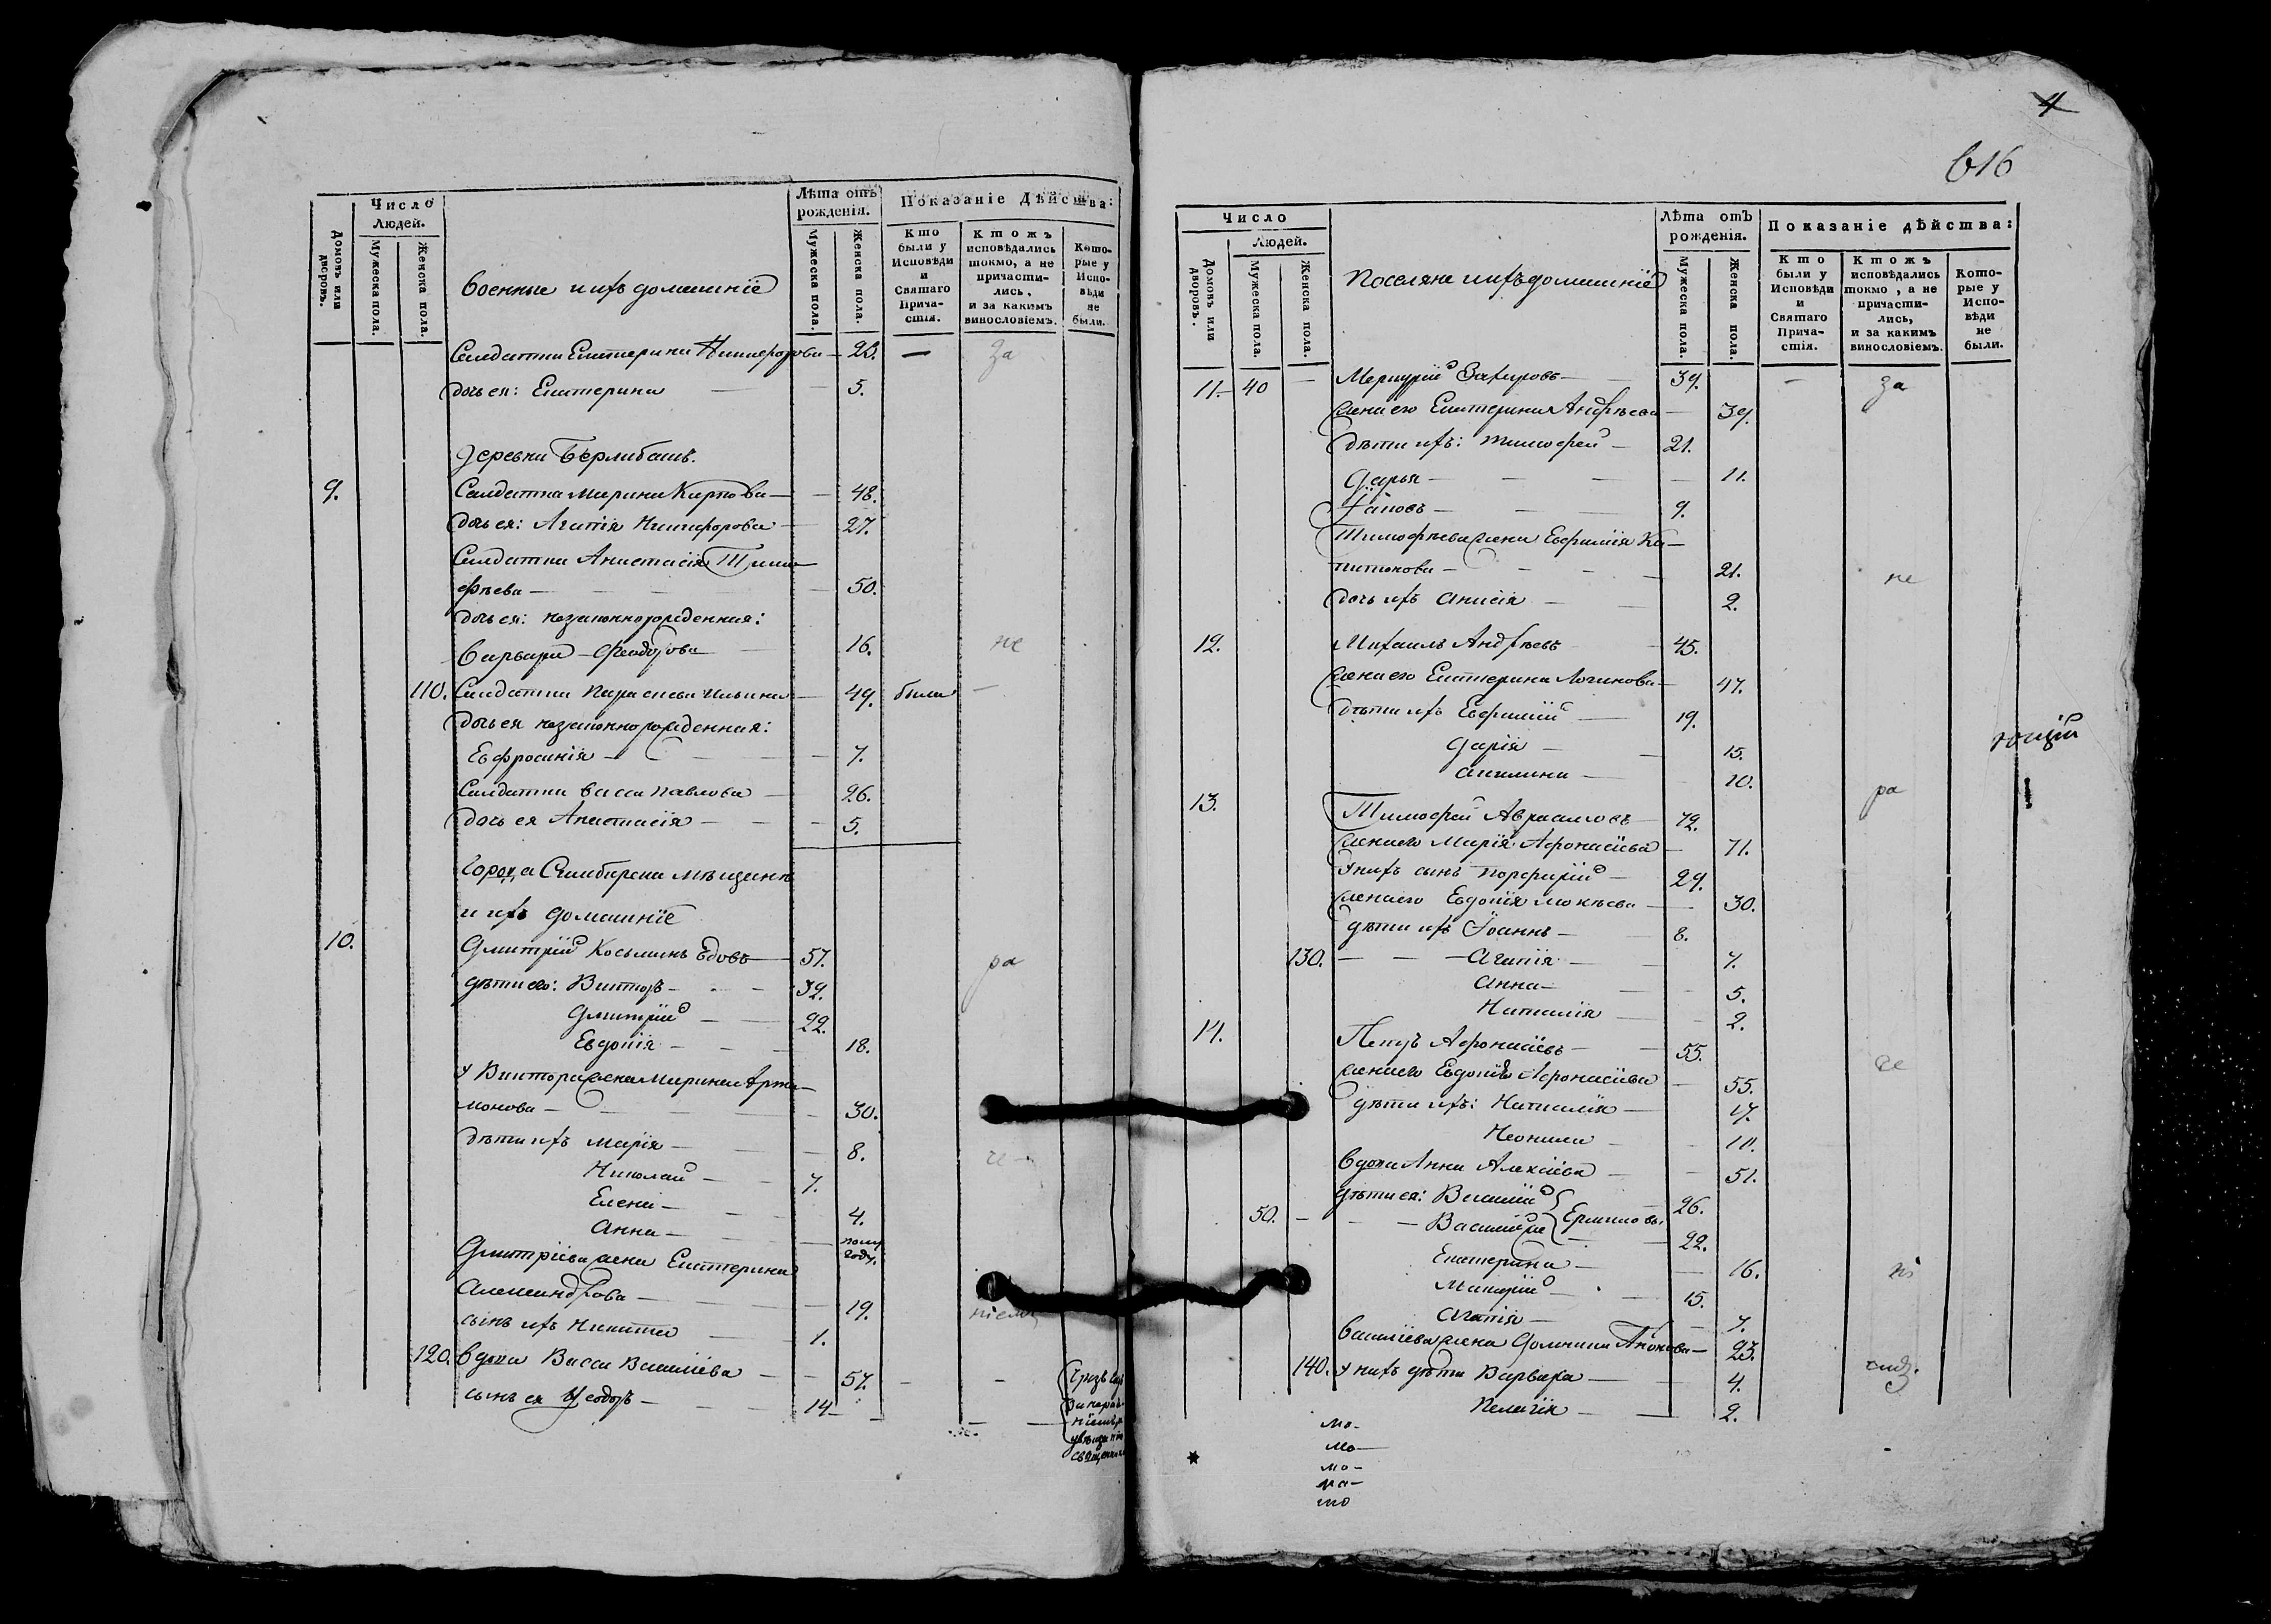 Число Людей.
Лѣта отъ рожденія.
Показаніе Дѣйства:
Домовъ или дворовъ.
Мужеска пола.
Женска пола.
Военные и ихъ домашніе
Мужеска пола.
Женска пола.
Кто были у Исповѣди и Святаго Причастія.
Ктожъ исповѣдались токмо, а не причастились, и за какимъ винословіемъ.
Которые у Исповѣди не были.
Салдатка Екатерина Никифорова — 23. — за
дочь ея: Екатерина — 5.
деревни Бѣрлибашъ.
9. Салдатка Марина Карпова — 48.
дочь ея: Агапія Никифорова — 27.
Салдатка Анастасія Тимо-
фѣева — 50.
дочь ея: незаконнорожденная:
Варвара Феодорова — 16. не
110. Салдатка Параскева Ильина — 49. были —
дочь ея незаконнорожденная:
Евфросинія — 7.
Салдатка Васса Павлова — 26.
дочь ея Анастасія — 5.
города Симбирска мѣщане
и ихъ домашніе
10. Дмитрій Косьминъ Едовъ — 57. ра
дѣти его: Викторъ — 32.
Дмитрій — 22.
Евдокія — 18.
у Виктора жена Марина Арта-
монова — 30.
дѣти ихъ Марія — 8.
Николай — 7.
Елена — 4.
Анна — полу году.
Дмитріева жена Екатерина
Александрова — 19. ніемъ
сынъ ихъ Никита — 1.
120. вдова Васса Васильева — 57. — —
сынъ ея Ѳеодоръ — 14 —
4
616
Число
Людей.
Лѣта отъ рожденія.
Показаніе дѣйства:
Домовъ или дворовъ.
Мужеска пола.
Женска пола.
Поселяне и ихъ домашніе
Мужеска пола.
Женска пола.
Кто были у Исповѣди и Святаго Причастія.
Ктожъ исповѣдались токмо, а не причастились, и за какимъ винословіемъ.
Которые у Исповѣди не были.
11. — 40 — Меркурій Захаровъ — 39. — за
жена его Екатерина Андрѣева — 39.
дѣти ихъ: Тимофей — 21.
Дарья — 11.
Іаковъ — 9.
Тимофѣева жена Евфимія Ка-
питонова — 21. не
дочь ихъ Анисія — 2.
12. Михаилъ Андрѣевъ — 45.
жена его Екатерина Логинова — 47.
дѣти ихъ Евфимій — 19.
Дарія — 15.
Акилина — 10.
13. Тимофей Авраамовъ — 72. ра
жена его Марія Афонасіева — 71.
у нихъ сынъ Порфирій — 29.
жена его Евдокія Мокѣева — 30.
дѣти ихъ Іоаннъ — 8.
130. — — — Агапія — 7.
Анна — 5.
Наталія — 2.
14. Петръ Афонасіевъ — 55.
жена его Евдокія Афонасіева — 55.
дѣти ихъ: Наталія — 17.
Неонила — 11.
вдова Анна Алексіева — 51.
дѣти ея: Василій 26.
50. — — — Василій же Ермиловы 22.
Екатерина — 16.
Макарій — 15.
Агапія — 7.
Василіева жена Домника — 23.
140. у нихъ дѣти Варвара — 4.
Пелагія — 2.
мо-
мо-
мо-
на-